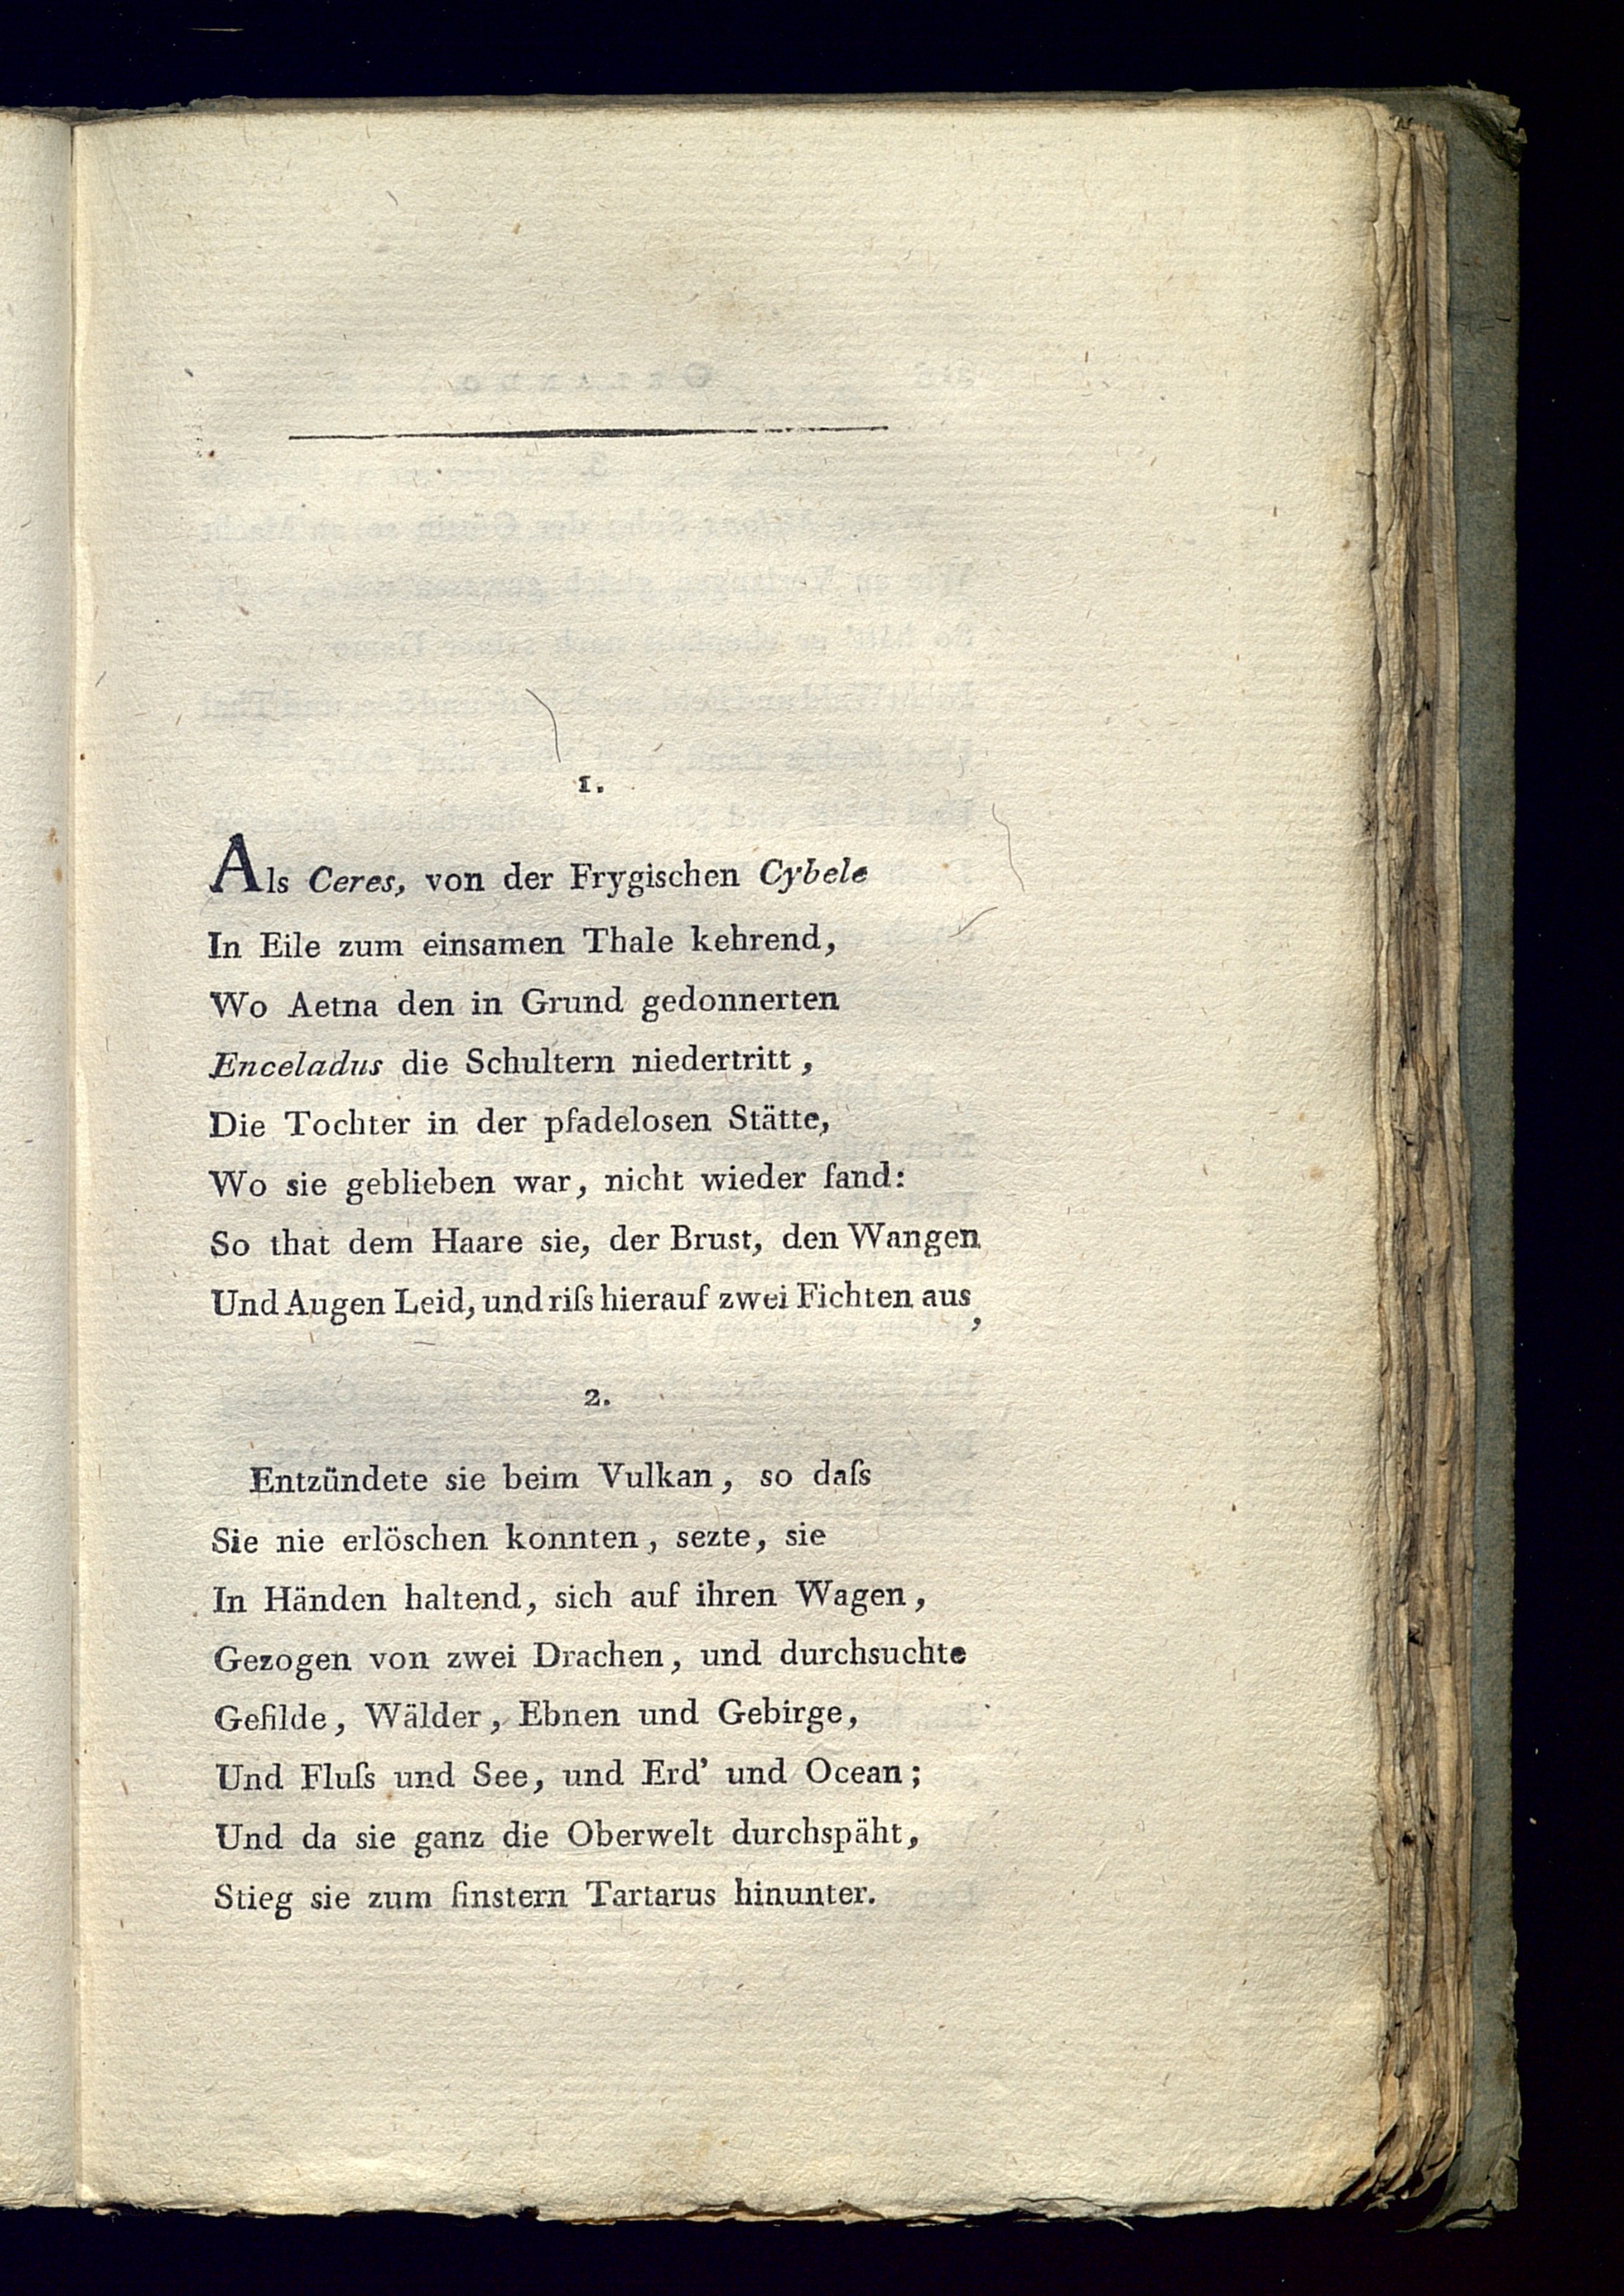 1.
Als Ceres, von der Frygischen Cybele
In Eile zum einsamen Thale kehrend,
Wo Aetna den in Grund gedonnerten
Enceladus die Schultern niedertritt,
Die Tochter in der pfadelosen Stätte,
Wo sie geblieben war, nicht wieder fand:
So that dem Haare sie, der Brust, den Wangen
Und Augen Leid, und riſs hierauf zwei Fichten aus,
2.
Entzündete sie beim Vulkan, so daſs
Sie nie erlöschen konnten, sezte, sie
In Händen haltend, sich auf ihren Wagen,
Gezogen von zwei Drachen, und durchsuchte
Gefilde, Wälder, Ebnen und Gebirge,
Und Fluſs und See, und Erd' und Ocean;
Und da sie ganz die Oberwelt durchspäht,
Stieg sie zum finstern Tartarus hinunter.